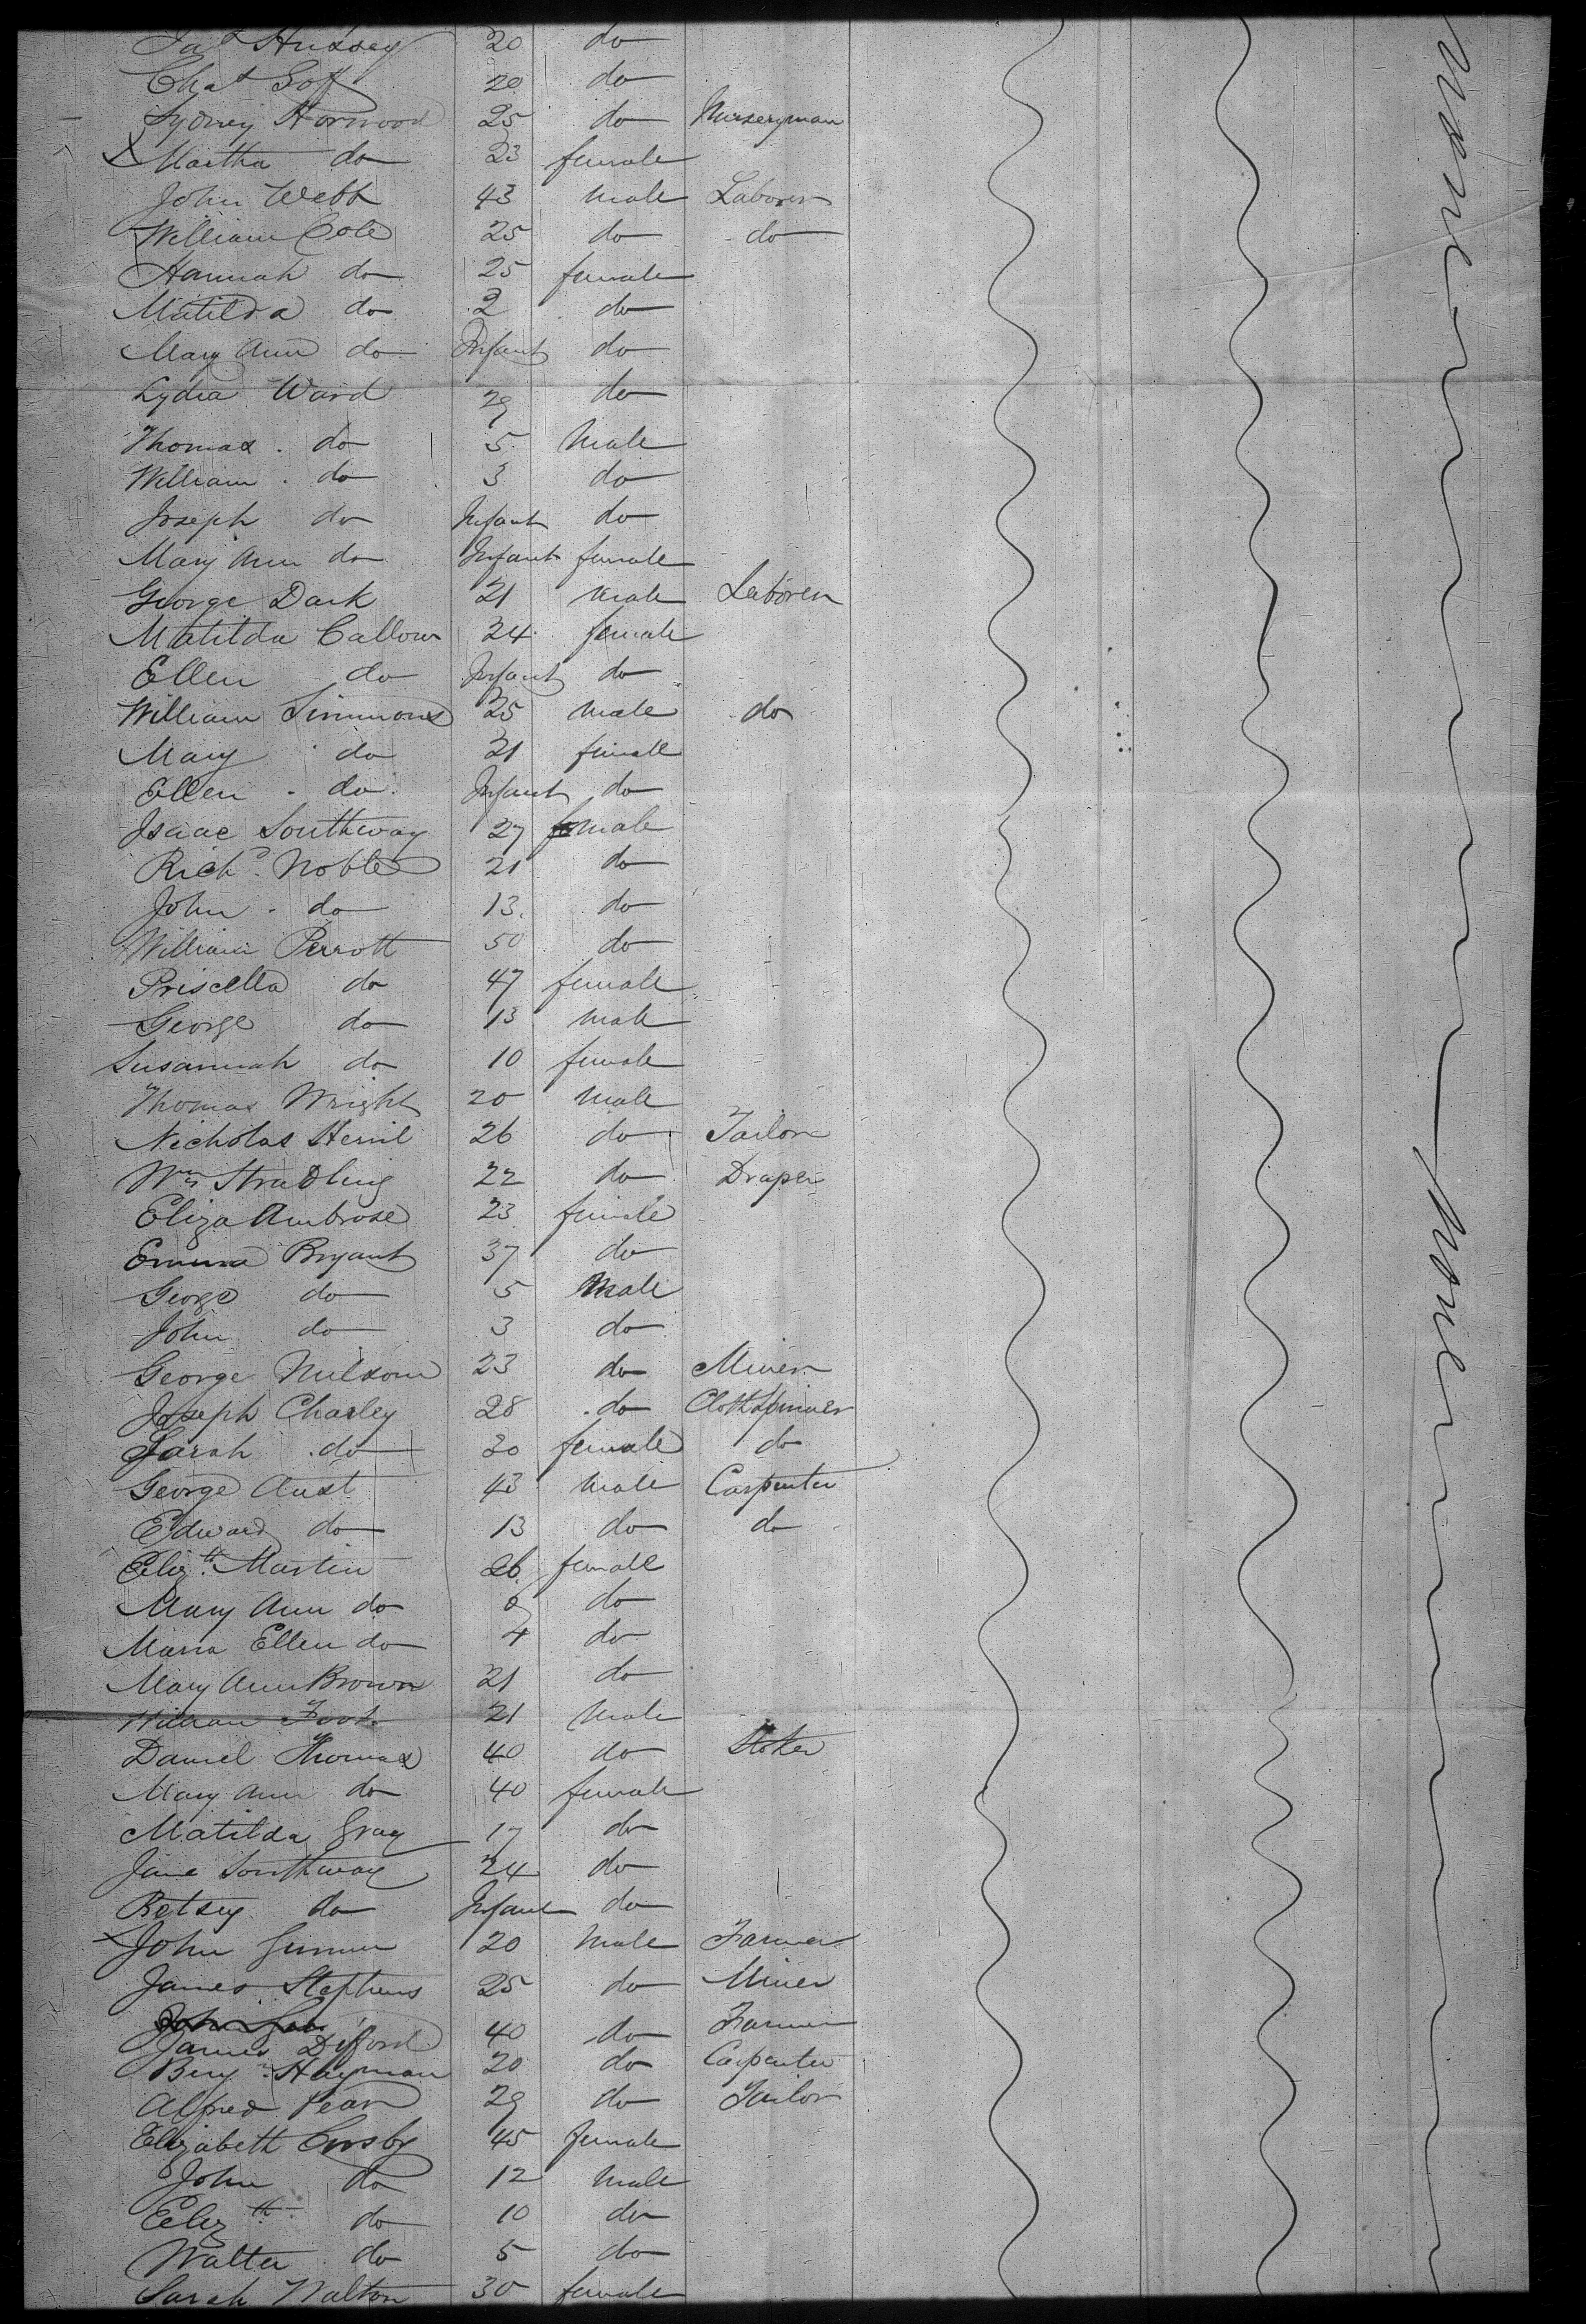 Jas Hussey 20 do
Chas Goff 20 do
Sydney Horwood 25 do Nurseryman
X Martha do 23 female
John Webb 43 male Laborer
William Cole 25 do do
Hannah do 25 female
Matilda do 2 do
Mary Ann do Infant do
Lydia Ward 29 do
Thomas do 5 Male
William do 3 do
Joseph do Infant do
Mary Ann do Infant female
George Dark 21 male Laborer
Matilda Callow 24 female
Ellen do Infant do
William Simmons 25 male do
Mary do 21 female
Ellen do Infant do
Isaac Southway 27 male
Richd Noble 21 do
John do 13 do
William Perrott 50 do
Priscella do 47 female
George do 13 male
Susannah do 10 female
Thomas Wright 20 male
Nicholas 26 do Tailor
Wm Stradling 22 do Draper
Eliza Ambrose 23 female
Emma Bryant 37 do
George do 5 Male
John do 3 do
George Milsom 23 do Miner
Joseph Charley 28 do Cloth Spinner
Sarah do 30 female do
George Aust 43 male Carpenter
Edward do 13 do do
Elizth Martin 26 female
Mary Ann do do
Maria Ellen do 4 do
Mary Ann Brown 21 do
William Foot 21 Male
Daniel Thomas 40 do Stoker
Mary Ann do 40 female
Matilda Gray 17 do
Jane Southway 24 do
Betsey do Infant do
X John 20 Male Farmer
James Stephens 25 do Miner
James Dyford 40 do Farmer
Benjn Hayman 20 do Carpenter
Alfred Pean 29 do Tailor
Elizabeth Crosby 45 female
John do 12 male
Elizth do 10 do
Walter do 5 do
Sarah Walton 30 female
None
None